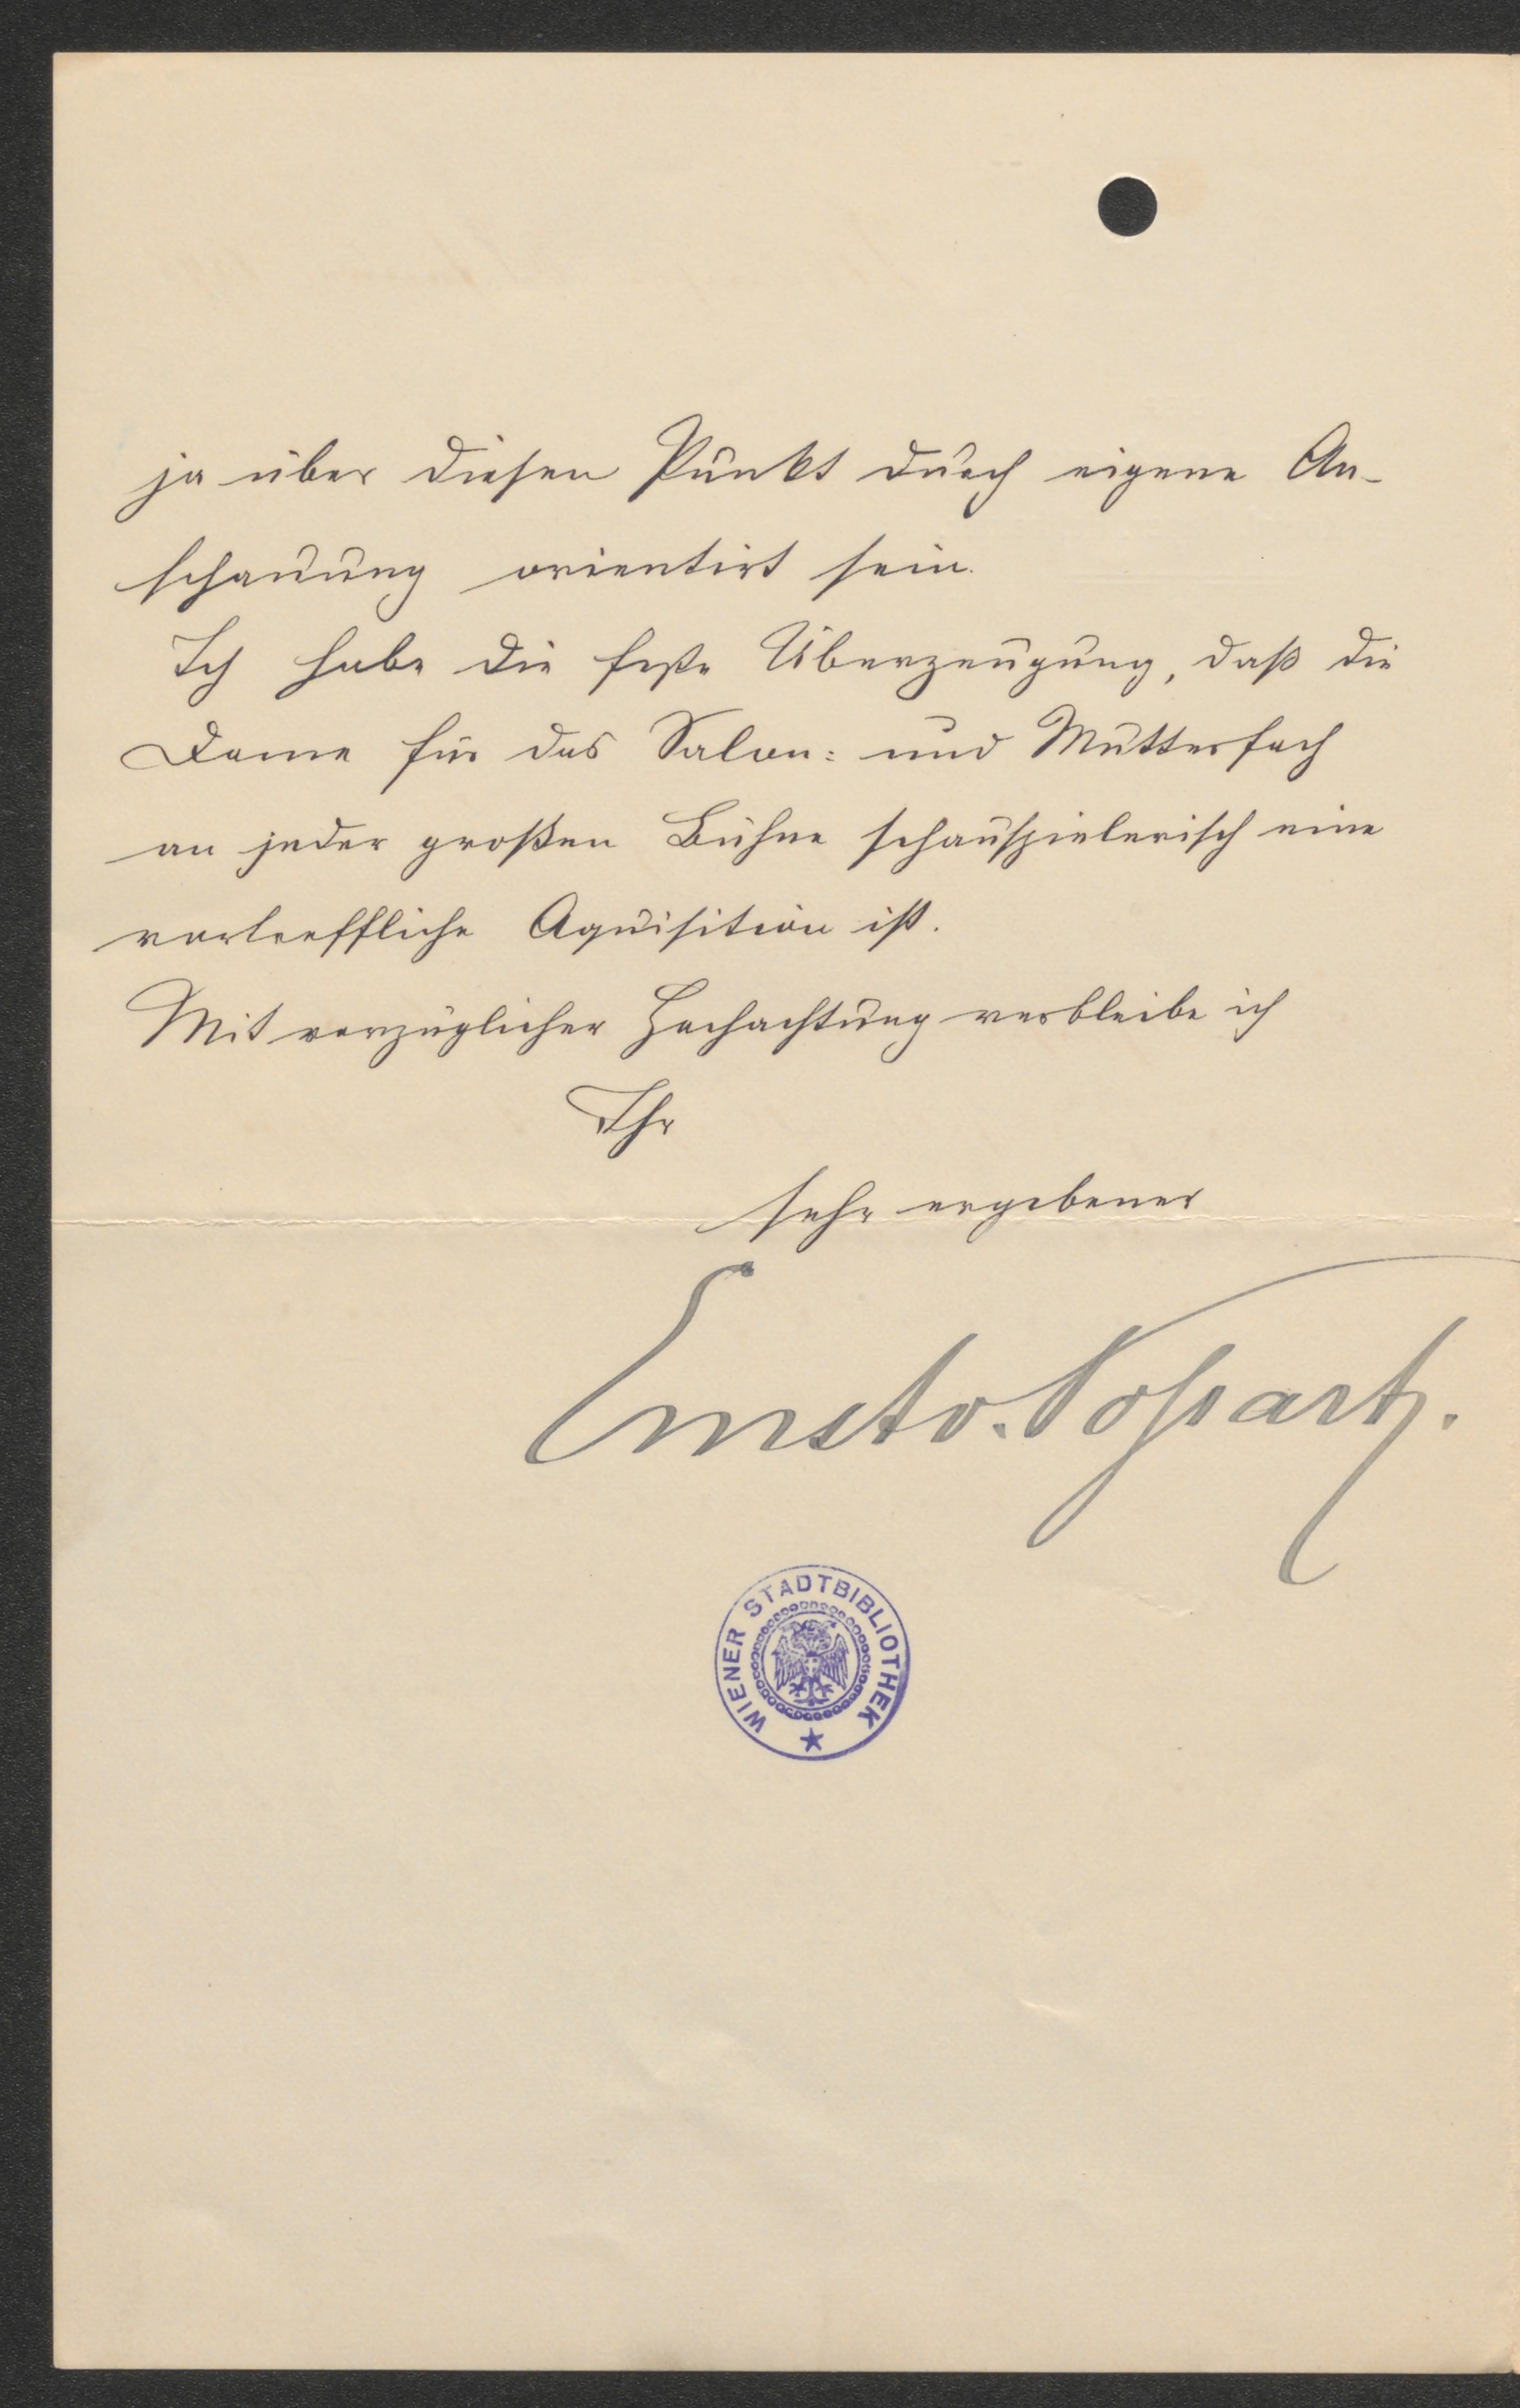 ja über diesen Punkt durch eigene An-
schauung orientirt sein.
Ich habe die feste Überzeugung, daß die
Dame für das Salon: und Mutterfach
an jeder großen Bühne schauspielerisch eine
vortreffliche Aquisition ist.
Mit vorzüglicher Hochachtung verbleibe ich
Ihr
sehr ergebener
Ernst v. Possart.
WIENER STADTBIBLIOTHEK